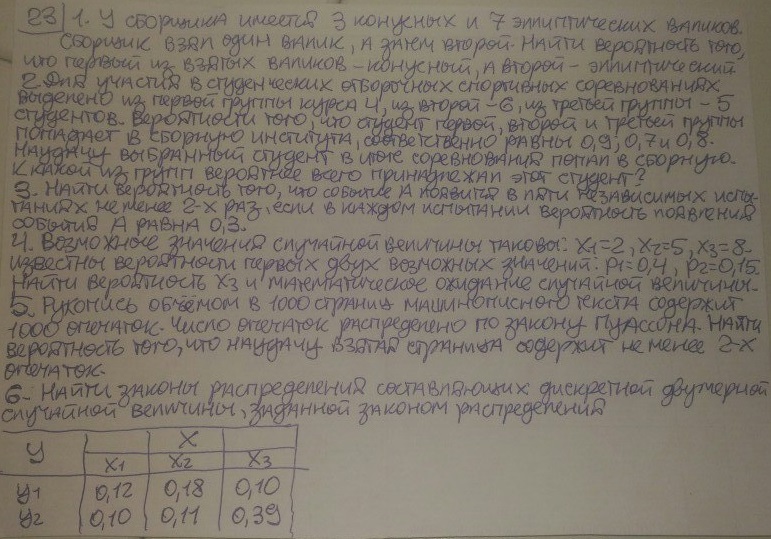 23 1. У сборщика имеется 3 конусных и 7 эллиптических валиков.
Сборщик взял один валик, а затем второй. Найти вероятность того,
что первый из взятых валиков - конусный, а второй - эллиптический
2. Для участия в студенческих отборочных спортивных соревнованиях
выделено из первой группы курса 4, из второй - 6, из третьей группы - 5
студентов. Вероятности того, что студент первой, второй и третьей группы
попадает в сборную института, соответственно равны 0,9; 0,7 и 0,8.
Наудачу выбранный студент в итоге соревнования попал в сборную.
К какой из групп вероятнее всего принадлежал этот студент?
3. Найти вероятность того, что событие А появится в пяти независимых испы-
таниях не менее 2-х раз, если в каждом испытании вероятность появления
события А равна 0,3.
4. Возможные значения случайной величины таковы: x1=2, x2=5, x3=8.
известны вероятности первых двух возможных значений: p1=0,4, p2=0,15.
Найти вероятность x3 и математическое ожидание случайной величины.
5. Рукопись объёмом в 1000 страниц машинописного текста содержит
1000 опечаток. Число опечаток распределено по закону Пуассона. Найти
вероятность того, что наудачу взятая страница содержит не менее 2-х
опечаток.
6. Найти законы распределения составляющих дискретной двумерной
случайной величины, заданной законом распределения
У X
x1 x2 x3
y1 0,12 0,18 0,10
y2 0,10 0,11 0,39